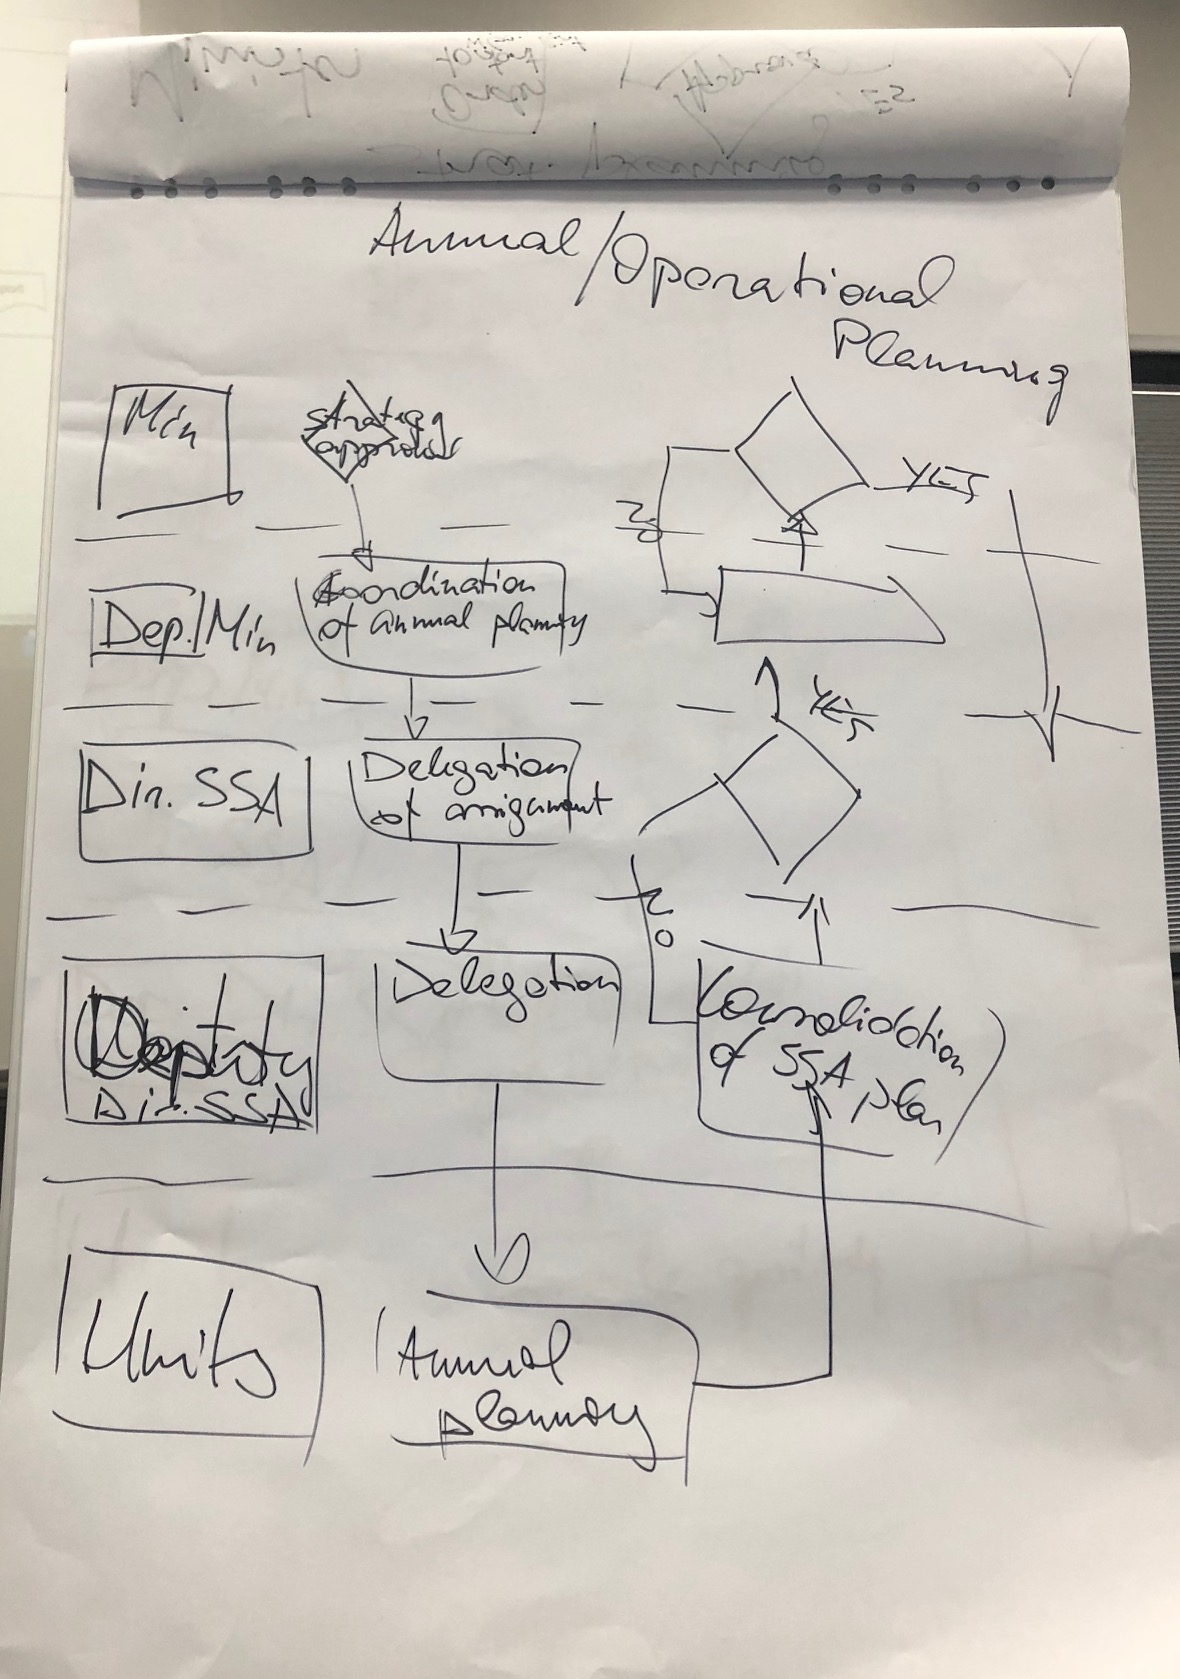 Annual/Operational
Planning
Min
Strategy
approval
YES
No
Dep./Min
Coordination
of annual planning
YES
Dir. SSA
Delegation
of assignment
No
Deputy
Dir. SSA
Delegation
Consolidation
of SSA plan
Units
Annual
planning